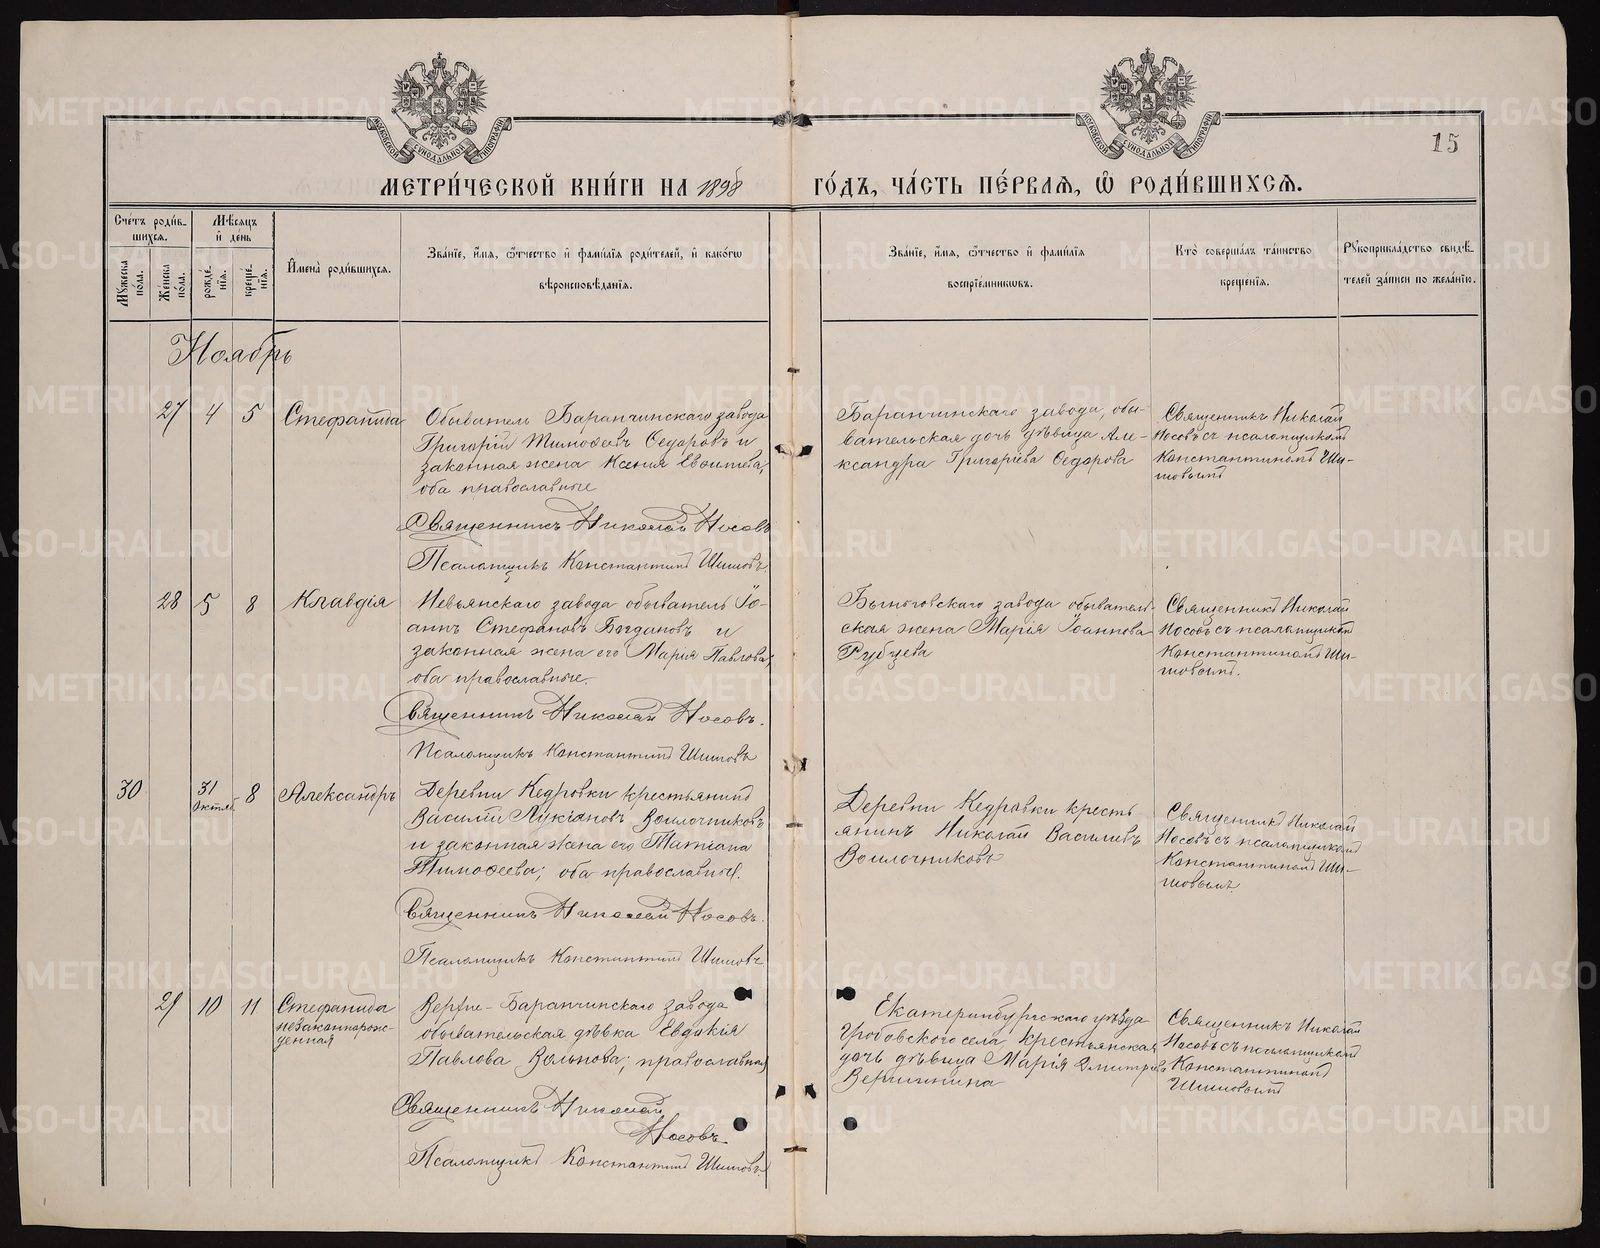 МОСКОВСКОЙ СѴНОДАЛЬНОЙ ТИПОГРАФІИ
МОСКОВСКОЙ СѴНОДАЛЬНОЙ ТИПОГРАФІИ
15
МЕТРИ́ЧЕСКОЙ КНИ́ГИ НА 1898 ГО́ДЪ, ЧА́СТЬ ПЕ́РВАѦ, Ѿ РОДИ́ВШИХСѦ.
Сче́тъ роди́в-
шихсѧ.
Мꙋжеска по́ла.
Же́нска по́ла.
Мѣ́сѧцъ
и҆ де́нь
рожде́-
нїѧ.
креще́-
нїѧ.
И҆мена̀ роди́вшихсѧ.
Зва́нїе, и҆́мѧ, ѻ҆́тчество и҆ фамилїѧ роди́телей, и҆ како́гѡ
вѣроисповѣ́данїѧ.
Зва́нїе, и҆́мѧ, ѻ҆́тчество и҆ фамилїѧ
воспрїе́мникѡвъ.
Кто̀ соверша́лъ та́инство
креще́нїѧ.
Рꙋкоприкла́дство свидѣ́-
телей за́писи по жела́нїю.
Ноябрь
27 4 5 Стефанида
Обыватель Баранчинскаго завода
Григорій Тимоѳеевъ Ѳедоровъ и
законная жена Ксенія
оба православные
Священникъ Николай Носовъ
Псаломщикъ Константинъ Шишовъ
Баранчинскаго завода, обы-
вательская дочь дѣвица Але-
ксандра Григоріева Ѳедорова
Священникъ Николай
Носовъ съ псаломщикомъ
Константиномъ Ши-
шовымъ
28 5 8 Клавдія
Невьянскаго завода обыватель Іо-
аннъ Стефановъ Богдановъ и
законная жена его Марія Павлова,
оба православные.
Священникъ Николай Носовъ.
Псаломщикъ Константинъ Шишовъ
Быньговскаго завода обыватель-
ская жена Марія Іоаннова
Рубцева
Священникъ Николай
Носовъ съ псаломщикомъ
Константиномъ Ши-
шовымъ.
30 31 Октяб. 8 Александръ
Деревни Кедровки крестьянинъ
Василій Лукіановъ Воилочниковъ
и законная жена его Татіана
Тимоѳеева; оба православные.
Священникъ Николай Носовъ.
Псаломщикъ Константинъ Шишовъ
Деревни Кедровки кресть
янинъ Николай Василіевъ
Воилочниковъ
Священникъ Николай
Носовъ съ псаломщикомъ
Константиномъ Ши-
шовымъ
29 10 11 Стефанида
незаконнорож-
денная
Верхне-Баранчинскаго завода
обывательская дѣвка Евдокія
Павлова Вольнова; православная
Священникъ Николай
Носовъ
Псаломщикъ Константинъ Шишовъ
Екатеринбургскаго уѣзда
Гробовского села, крестьянская
дочь дѣвица Марія Дмитріева
Вершинина
Священникъ Николай
Носовъ съ псаломщикомъ
Константиномъ
Шишовымъ
METRIKI.GASO-URAL.RU